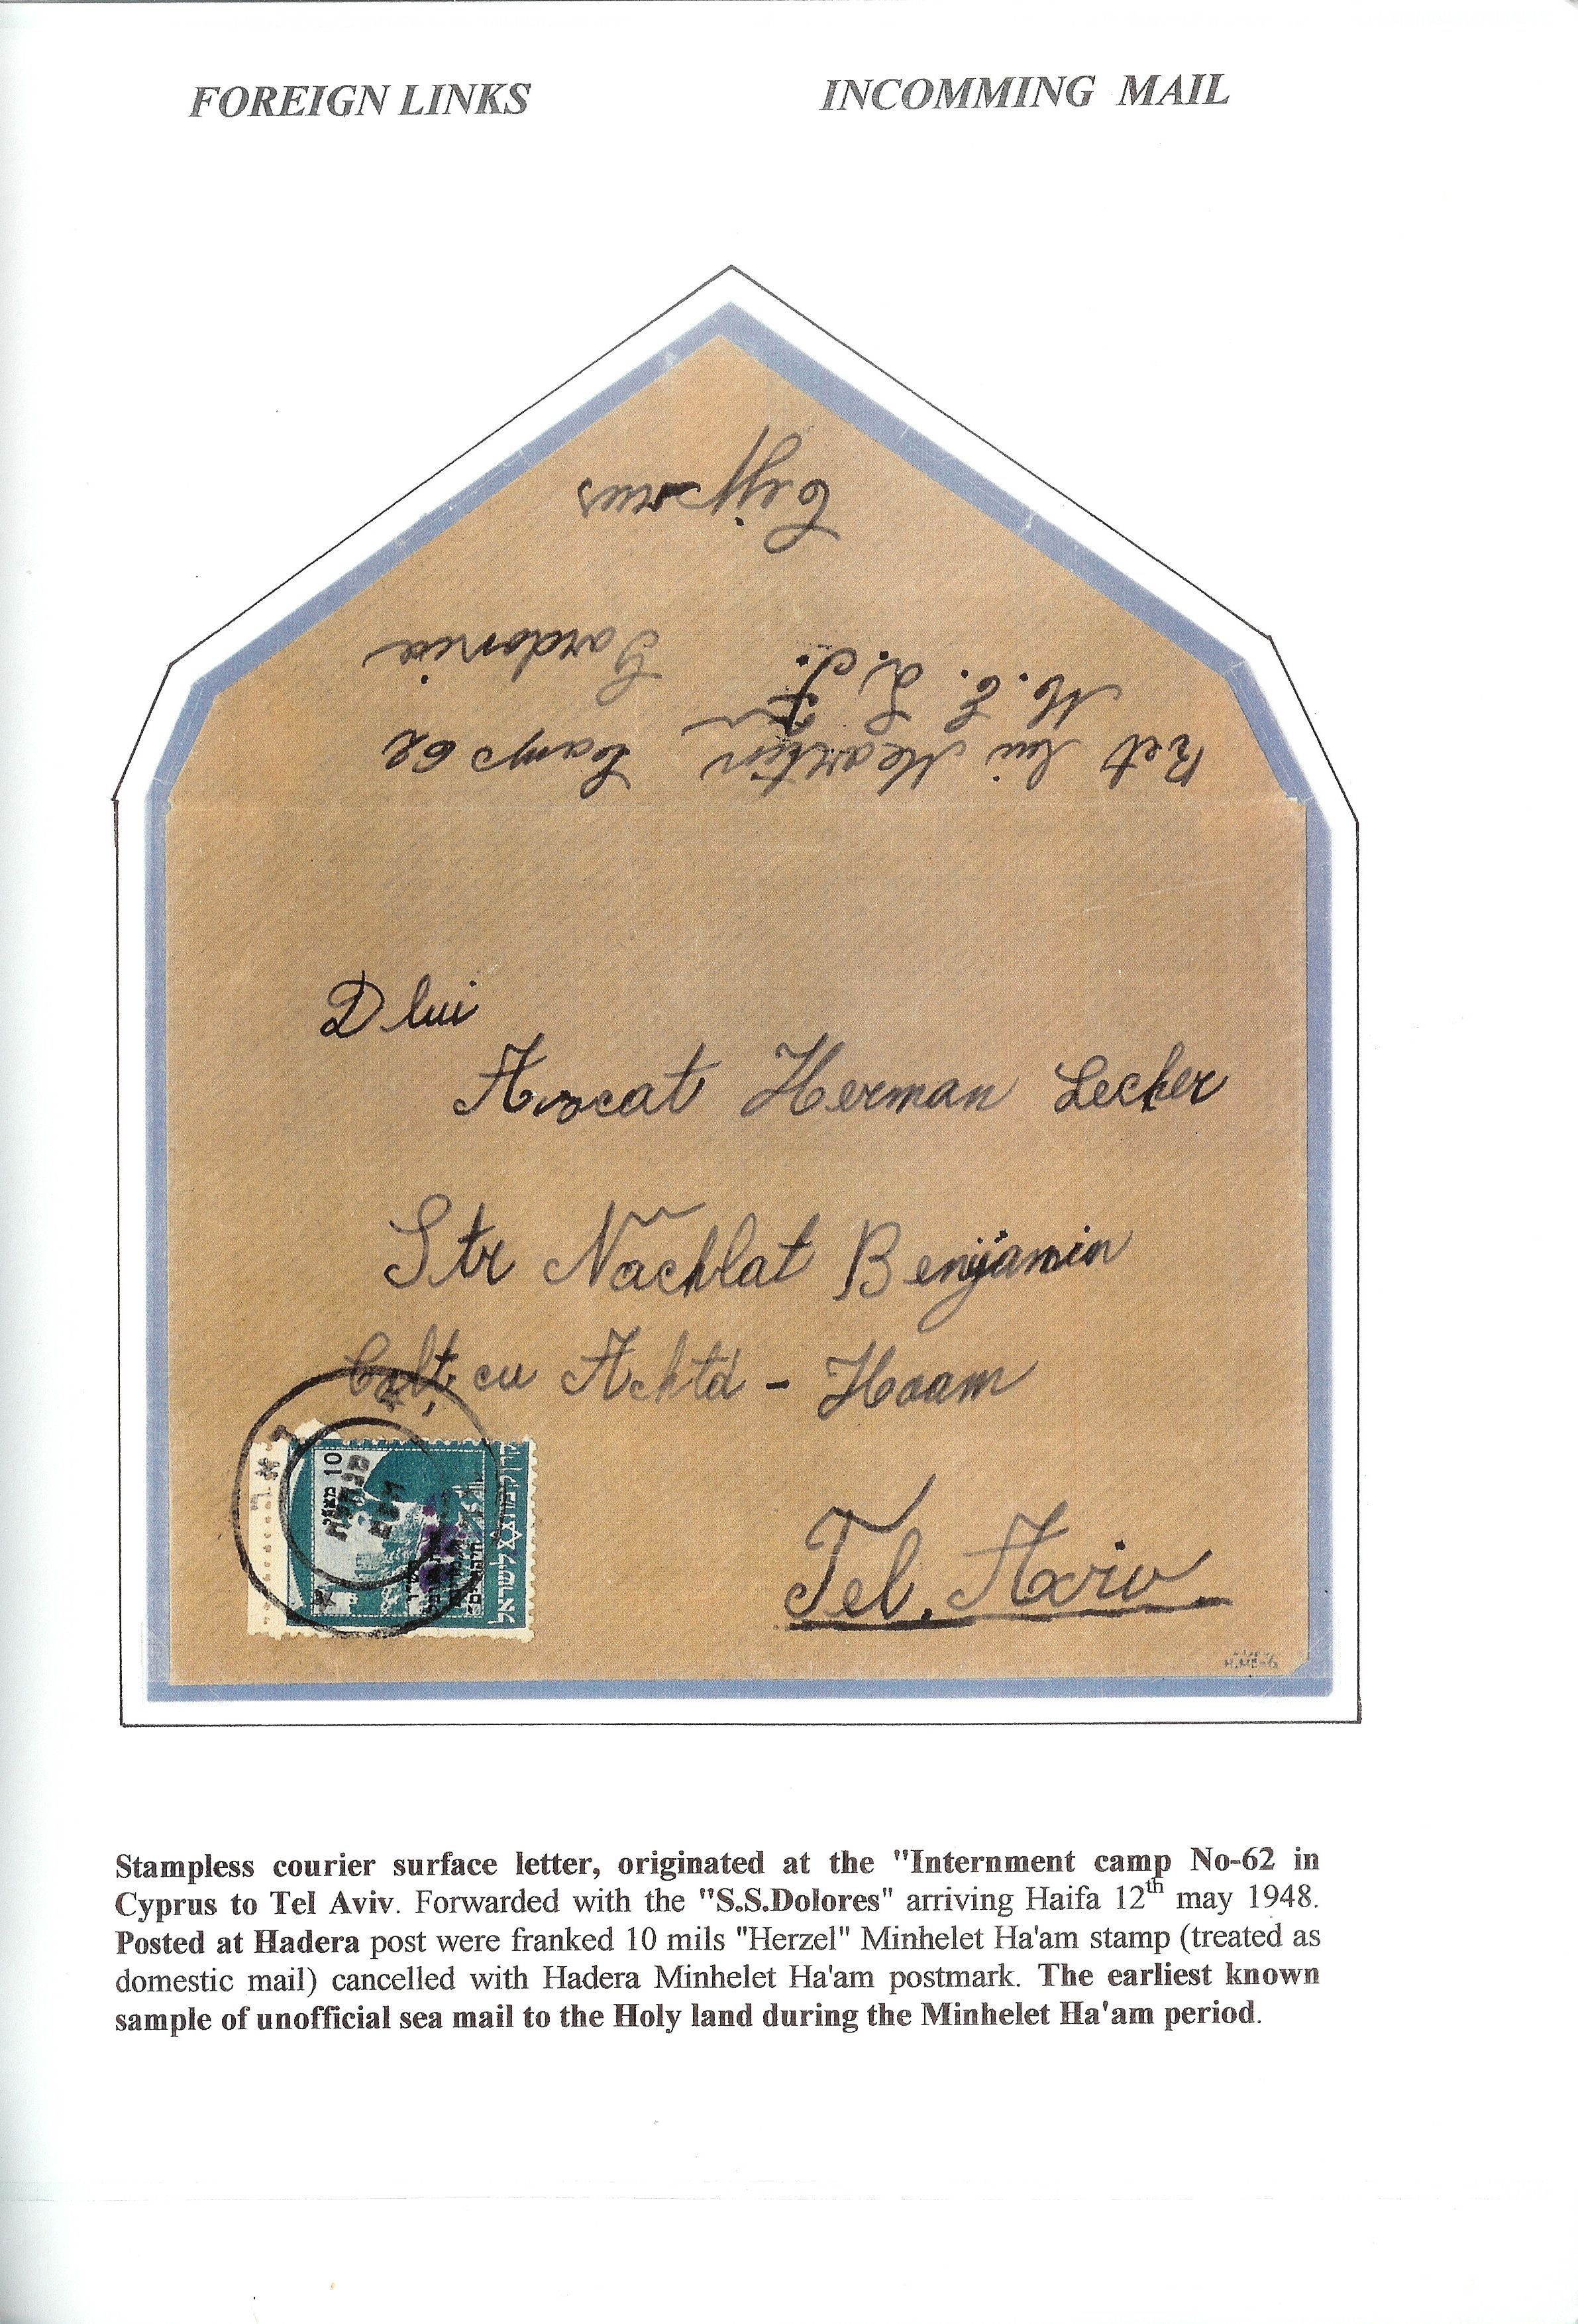 FOREIGN LINKS
INCOMMING MAIL
Cyprus
Gordonia
M. C. L. I.
lui Martin Camp 62
D lui
Avocat Herman Lecher
Str Nachlat Benijamin
Colţ cu Achtd - Haam
Tel. Aviv
10
מאל
מנהלת
העם
לישראל
Stampless courier surface letter, originated at the "Internment camp No-62 in
Cyprus to Tel Aviv. Forwarded with the "S.S.Dolores" arriving Haifa 12th may 1948.
Posted at Hadera post were franked 10 mils "Herzel" Minhelet Ha'am stamp (treated as
domestic mail) cancelled with Hadera Minhelet Ha'am postmark. The earliest known
sample of unofficial sea mail to the Holy land during the Minhelet Ha'am period.